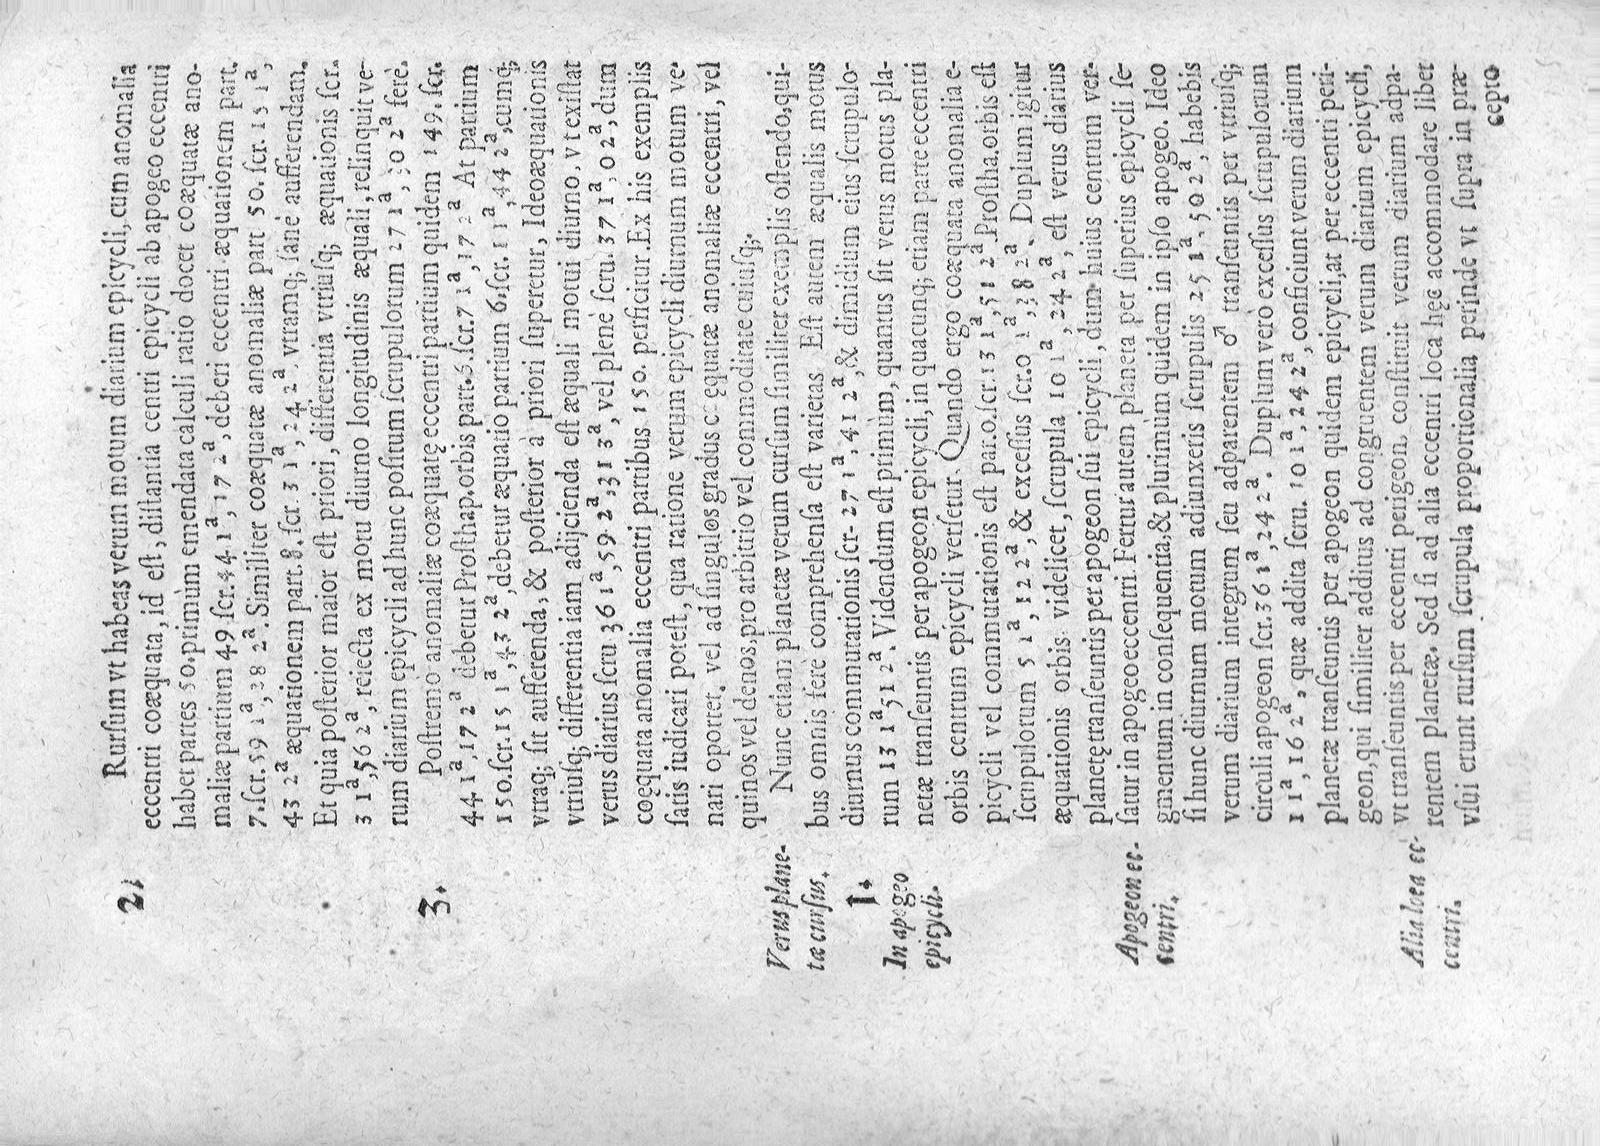 2.
Rurſum vt habeas verum motum diarium epicycli, cum anomalia
eccentri coæquata, id eſt, diſtantia centri epicycli ab apogeo eccentri
habet partes 50. primùm emendata calculi ratio docet coæquatæ ano-
maliæ partium 49 ſcr. 44 1ª, 17 2ª, deberi eccentri æquationem part.
7. ſcr. 59 1ª, 38 2ª. Similiter coæquatæ anomaliæ part 50. ſcr. 15 1ª,
43 2ª æquationem part. 8. ſcr. 3 1ª, 24 2ª vtramq; ſanè aufferendam.
Et quia poſterior maior eſt priori, differentia vtriuſq; æquationis ſcr.
3 1ª, 56 2ª, reiecta ex motu diurno longitudinis æquali, relinquit ve-
rum diarium epicycli ad hunc poſitum ſcrupulorum 27 1ª, 30 2ª ferè.
3.
Poſtremo anomaliæ coæquatę eccentri partium quidem 149. ſcr.
44 1ª, 17 2ª debetur Proſthap. orbis part. 5. ſcr. 7 1ª, 17 2ª At partium
150. ſcr. 15 1ª, 43 2ª, debetur æquatio partium 6. ſcr. 11 1ª, 44 2ª, cumq;
vtraq; ſit aufferenda, & poſterior à priori ſuperetur, Ideo æquationis
vtriuſq; differentia iam adijcienda eſt æquali motui diurno, vt exiſtat
verus diarius ſcru 36 1ª, 59 2ª, 31 3ª, vel plenè ſcru. 37 1ª, 0 2ª, dum
coęquata anomalia eccentri partibus 150. perficitur. Ex his exemplis
ſatis iudicari poteſt, qua ratione verum epicycli diurnum motum ve-
nari oportet, vel ad ſingulos gradus coęquatæ anomaliæ eccentri, vel
quinos vel denos, pro arbitrio vel commoditate cuiuſq;.
Verus plane-
tæ curſus.
Nunc etiam planetæ verum curſum ſimiliter exemplis oſtendo, qui-
bus omnis ferè comprehenſa eſt varietas Eſt autem æqualis motus
diurnus commutationis ſcr. 27 1ª, 41 2ª, & dimidium eius ſcrupulo-
1.
In apogeo
epicycli.
rum 13 1ª, 51 2ª. Videndum eſt primùm, quantus ſit verus motus pla-
netæ tranſeuntis per apogeon epicycli, in quacunq; etiam parte eccentri
orbis centrum epicycli verſetur. Quando ergo coæquata anomalia e-
picycli vel commutationis eſt par. 0. ſcr 13 1ª, 51 2ª Proſtha. orbis eſt
ſcrupulorum 5 1ª, 12 2ª, & exceſſus ſcr. 0 1ª, 38 2ª. Duplum igitur
æquationis orbis: videlicet, ſcrupula 10 1ª, 24 2ª, eſt verus diarius
planetę tranſeuntis per apogeon ſui epicycli, dum huius centrum ver-
Apogeon ec-
centri.
ſatur in apogeo eccentri. Fertur autem planeta per ſuperius epicycli ſe-
gmentum in conſequentia, & plurimùm quidem in ipſo apogeo. Ideo
ſi hunc diurnum motum adiunxeris ſcrupulis 25 1ª, 50 2ª, habebis
verum diarium integrum ſeu adparentem ♂ tranſeuntis per vtriuſq;
circuli apogeon ſcr. 36 1ª, 24 2ª. Duplum verò exceſſus ſcrupulorum
1 1ª, 16 2ª, quæ addita ſcru. 10 1ª, 24 2ª, conficiunt verum diarium
planetæ tranſeuntis per apogeon quidem epicycli, at per eccentri peri-
geon, qui ſimiliter additus ad congruentem verum diarium epicycli,
vt tranſeuntis per eccentri perigeon, conſtituit verum diarium adpa-
Alia loca ec-
centri.
rentem planetæ. Sed ſi ad alia eccentri loca hęc accommodare libet
vſui erunt rurſum ſcrupula proportionalia perinde vt ſupra in præ-
cepto